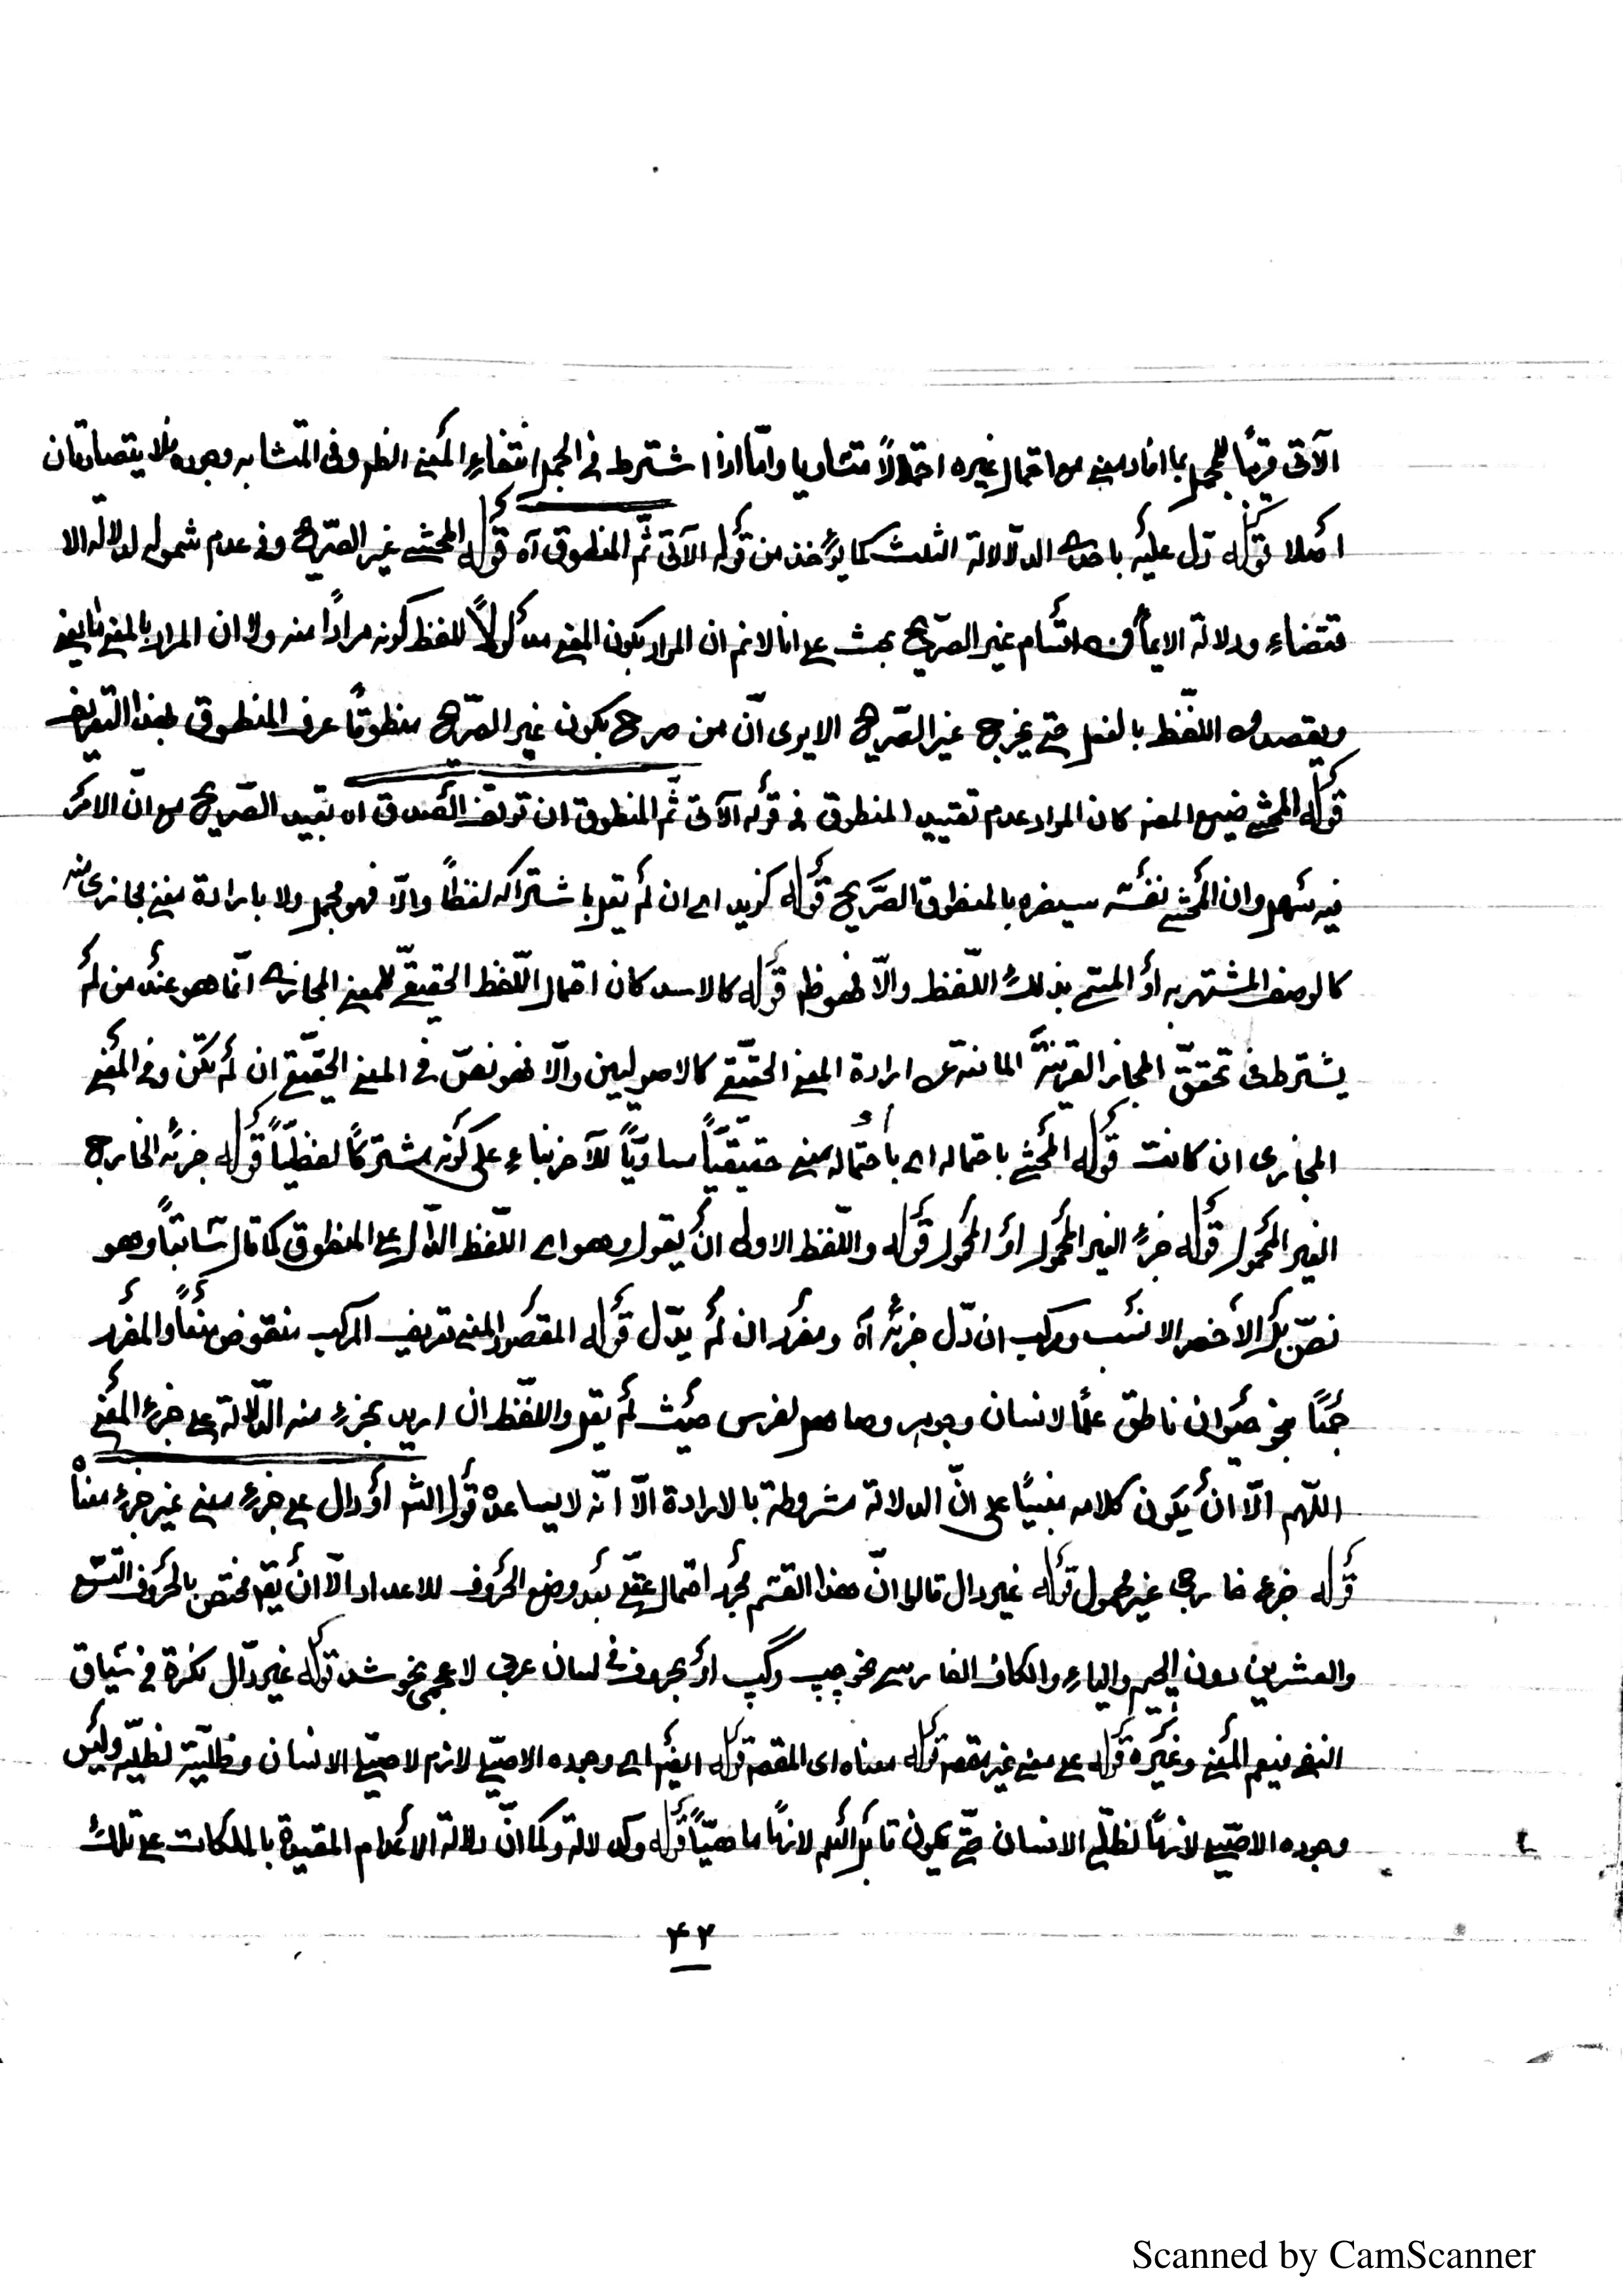 الآتى قريبًا للمجمل بما افاد معنى مع احتمال غيره احتمالًا متساويا وامّا اذا اشترط فى المجمل انتفاء المعنى الظ وفى المتشابه وجوده فلا يتصادقان
اصلا قوله دل عليه باحدى الدلالة الثلث كما يؤخذ من قوله الآتى ثمّ المنطوق آه قوله المحشى غير الصّريح وفى عدم شموله لدلالة الا
قتضاء ودلالة الايماء من اقسام غير الصّريح بحث على انا لانم ان المراد بكون المعنى مدلولًا للفظ كونه مرادًا منه ولا ان المراد بالمعنى ما يعنى
ويقصد من اللفّظ بالفعل حتى يخرج غير الصّريح الايرى انّ من صرح بكون غير الصّريح منطوقًا عرف المنطوق بهذا التعريف
قوله المحشى ضيع المص كان المراد عدم تقييد المنطوق فى قوله الآتى ثمّ المنطوق ان توقف الصدق اه بقيد الصّريح مع انّ الامر
فيه سهل وان المحشى نفسه سيفسره بالمنطوق الصّريح قوله كزيد اى ان لم يقل باشتراكه لفظًا والّا فهو مجمل ولا بارادة معنى مجازى منه
كالوصف المشتهر به او المسمّى بذلك اللّفظ والّا فهو ظ قوله كالاسد كان احتمال اللّفظ الحقيقى للمعنى المجازى انّما هو عند من لم
يشترط فى تحقّق المجاز القرينة المانعة عن ارادة المعنى الحقيقى كالاصوليين والّا فهو نصّ فى المعنى الحقيقى ان لم تكن وفى المعنى
المجازى ان كانت قوله المحشى باحتماله اى باحتماله معنى حقيقيًّا مساويًا للآخر بناء على كونه مشتركًا لفظيًّا قوله جزئه الخارج
الغير المحمول قوله جزء الغير المحمول او المحمول قوله واللّفظ الاولى ان يقول وهو اى اللّفظ الدّال على المنطوق كما قال سابقًا وهو
نصّ بل الاخصر الانسب ومركب ان دّل جزئه آه ومفرد ان لم يدّل قوله المقصود المعنى تعريف المركب منقوض منعًا والمفرد
جمعًا بنحو حيوان ناطق علمًا لانسان وجوهر وصاهل لفرس حيث لم يقل واللفّظ ان اريد بجزء منه الدّلالة على جزء المعنى
اللّهم الّا ان يكون كلامه مبنيًا على انّ الدلالة مشروطة بالارادة الّا انّه لا يساعده قول الش او دال على جزء معنى غير جزء معناه
قوله جزء خارجى غير محمول قوله غير دال قالوا انّ هذا القسم مجرد احتمال عقلى بعد وضع الحروف للاعداد الّا ان يق مختص بالحروف التسع
والعشرين دون الجيم والياء والكاف الفارسى نحو چپ وگپ او بحروف فى لسان عربى لا عجمى نحو شد قوله غير دّال نكرة فى سياق
النفى فيعم المعنى وغيره قوله على معنى غير مقصود قوله معناه اى المقصود قوله ايضًا اى وجوده الاصيلى لازم لاصيلى الانسان وظليّته لظليّه وليس
وجوده الاصيلى لازمًا لظلّى الانسان حتى يكون قابل العلم لازمًا ماهيّا قوله وكدلالة وكما انّ دلالة الاعدام المقيدة بالملكات على تلك
۴۲
Scanned by CamScanner